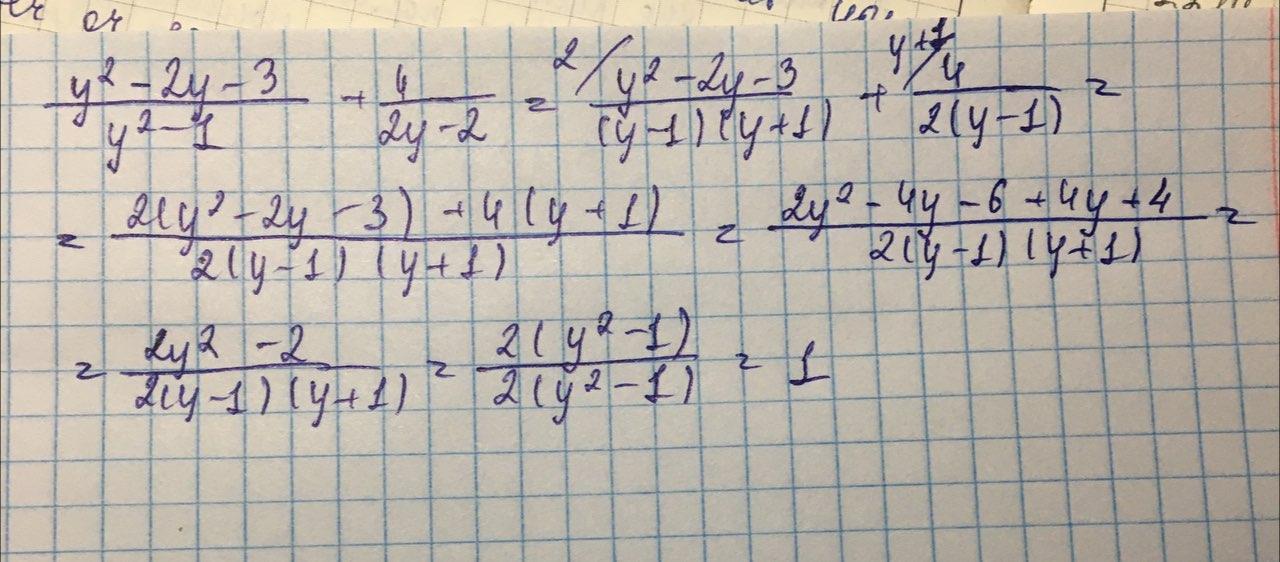 (y² - 2y - 3)/(y² - 1) + 4/(2y - 2) = 2/ (y² - 2y - 3)/((y - 1)(y + 1)) + y+1/ 4/(2(y - 1)) =
= (2(y² - 2y - 3) + 4(y + 1))/(2(y - 1)(y + 1)) = (2y² - 4y - 6 + 4y + 4)/(2(y - 1)(y + 1)) =
= (2y² - 2)/(2(y - 1)(y + 1)) = (2(y² - 1))/(2(y² - 1)) = 1